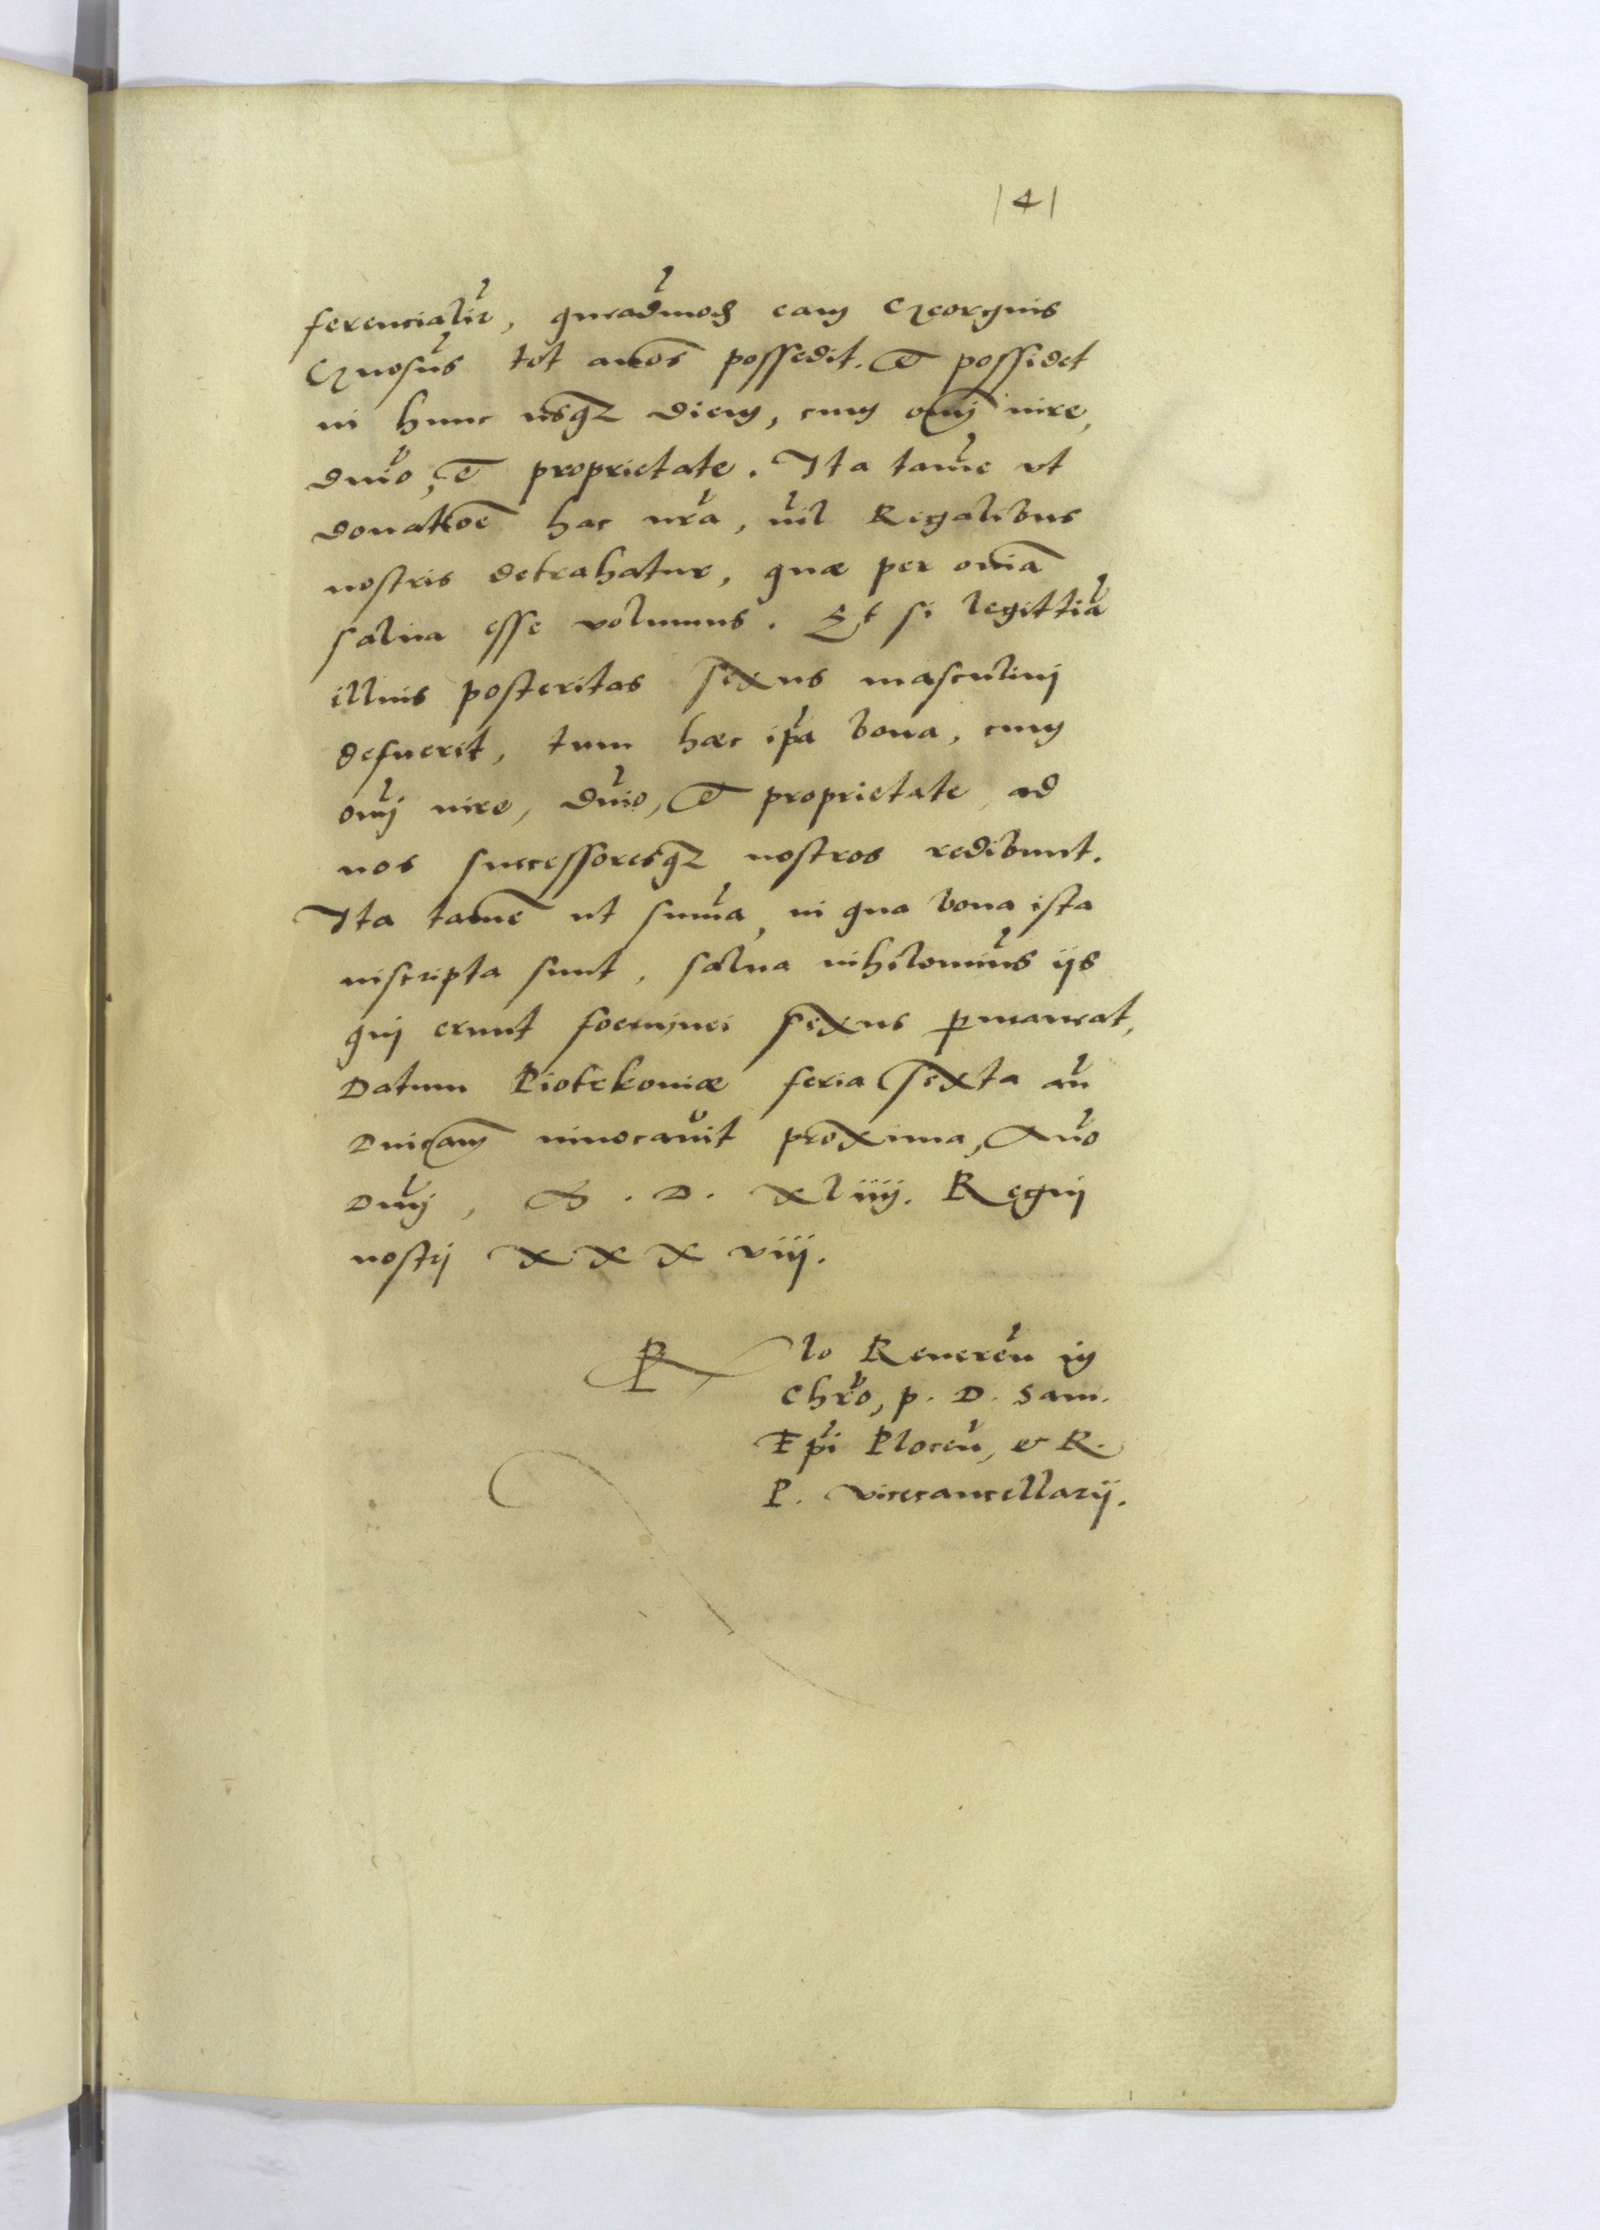 141
ferencialit̃, quẽadmod̃ eam Georgius
Gnosũs tot annos̃ possedit. et possidet
in hunc usq3 diem, cum omj̃ iure,
dnĩo, et proprietate. Ita tamẽ vt
donatioẽ hac nrã, nĩl Regalibus
nostris detrahatur, quæ per omiã
salua esse volumus. Et si legittiã
illius posteritas sexus masculinj
defuerit, tum hæc ip̃a bona, cum
omj̃ iure, dnĩo, et proprietate ad
nos successoresq3 nostros redibunt.
Ita tamẽ ut sum̃a, in qua bona ista
inscripta sunt, salua nihilomiñs ijs
quj erunt foeminei sexus p̱maneat,
Datum Piotrkouiæ feria sexta añ
Dnicam̃ inuocauit proxima, Año
Dnj̃, M. D. xliiij. Regnj
nostrj xxxviij.
Rlo Reuereñ in
Chrõ, p. D. Sam.
Epĩ Ploceñ, et R.
P. vicecancellarij.